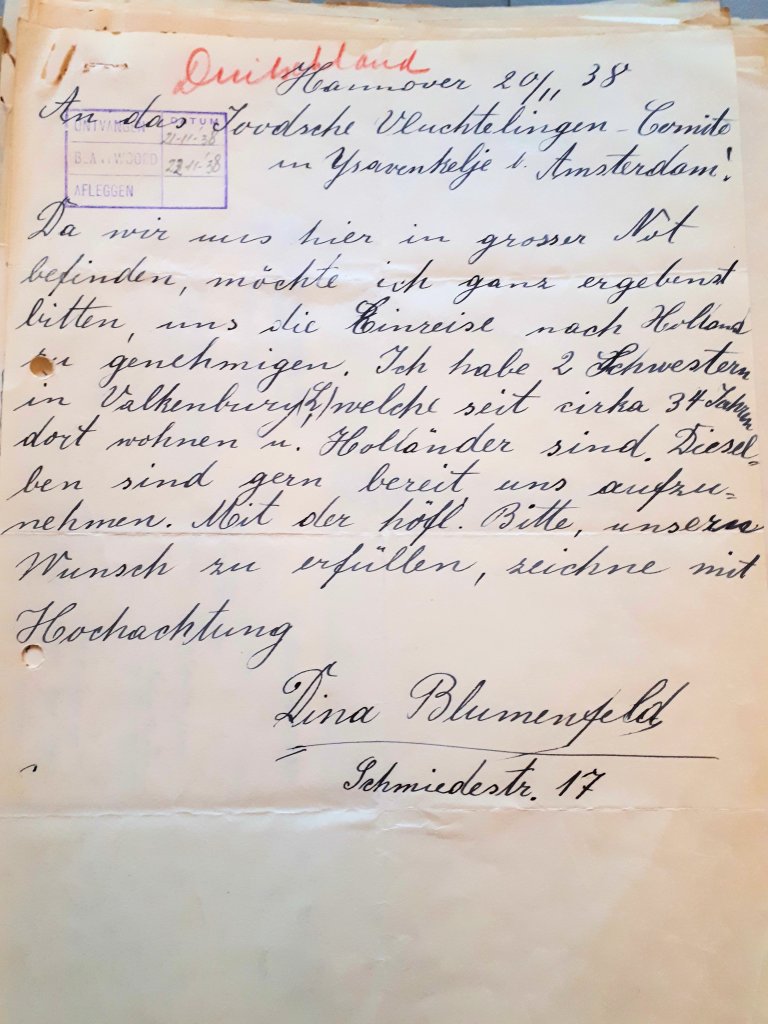 Deutschland
Hannover 20/11 38
An das Joodsche Vluchtelingen-Comite
in Ysavenkelje b. Amsterdam!
ONTVANGEN DATUM 21-11-'38
BEANTWOORD 22-11-'38
AFLEGGEN
Da wir uns hier in grosser Not
befinden, möchte ich ganz ergebenst
bitten, uns die Einreise nach Holland
zu genehmigen. Ich habe 2 Schwestern
in Valkenburg (L.) welche seit cirka 34 Jahren
dort wohnen u. Holländer sind. Diesel-
ben sind gern bereit, uns aufzu-
nehmen. Mit der höfl. Bitte, unsern
Wunsch zu erfüllen, zeichne mit
Hochachtung
Dina Blumenfeld
Schmiedestr. 17